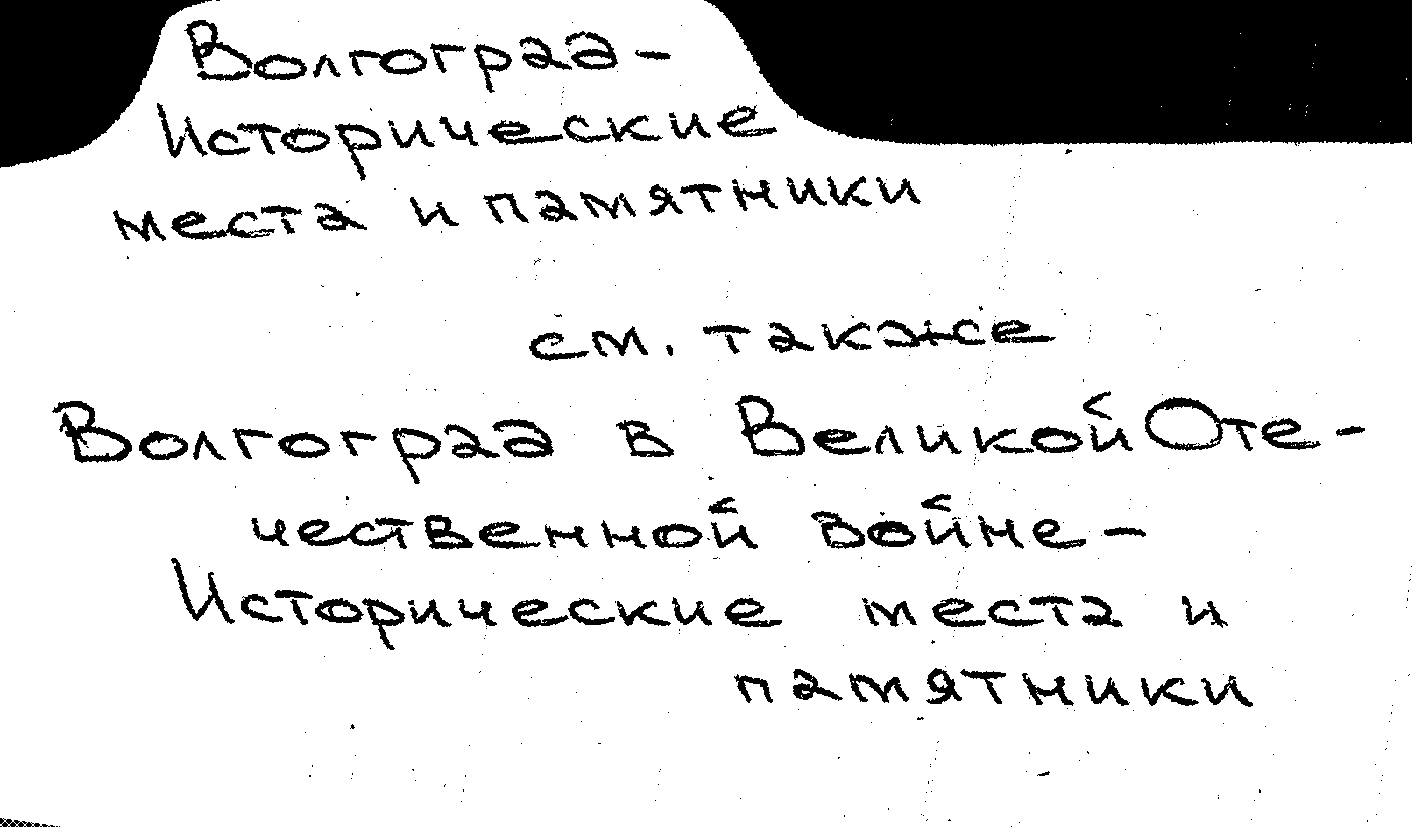 Волгоград-
Исторические
места и памятники
см. также
Волгоград в Великой Оте-
чественной войне-
Исторические места и
памятники